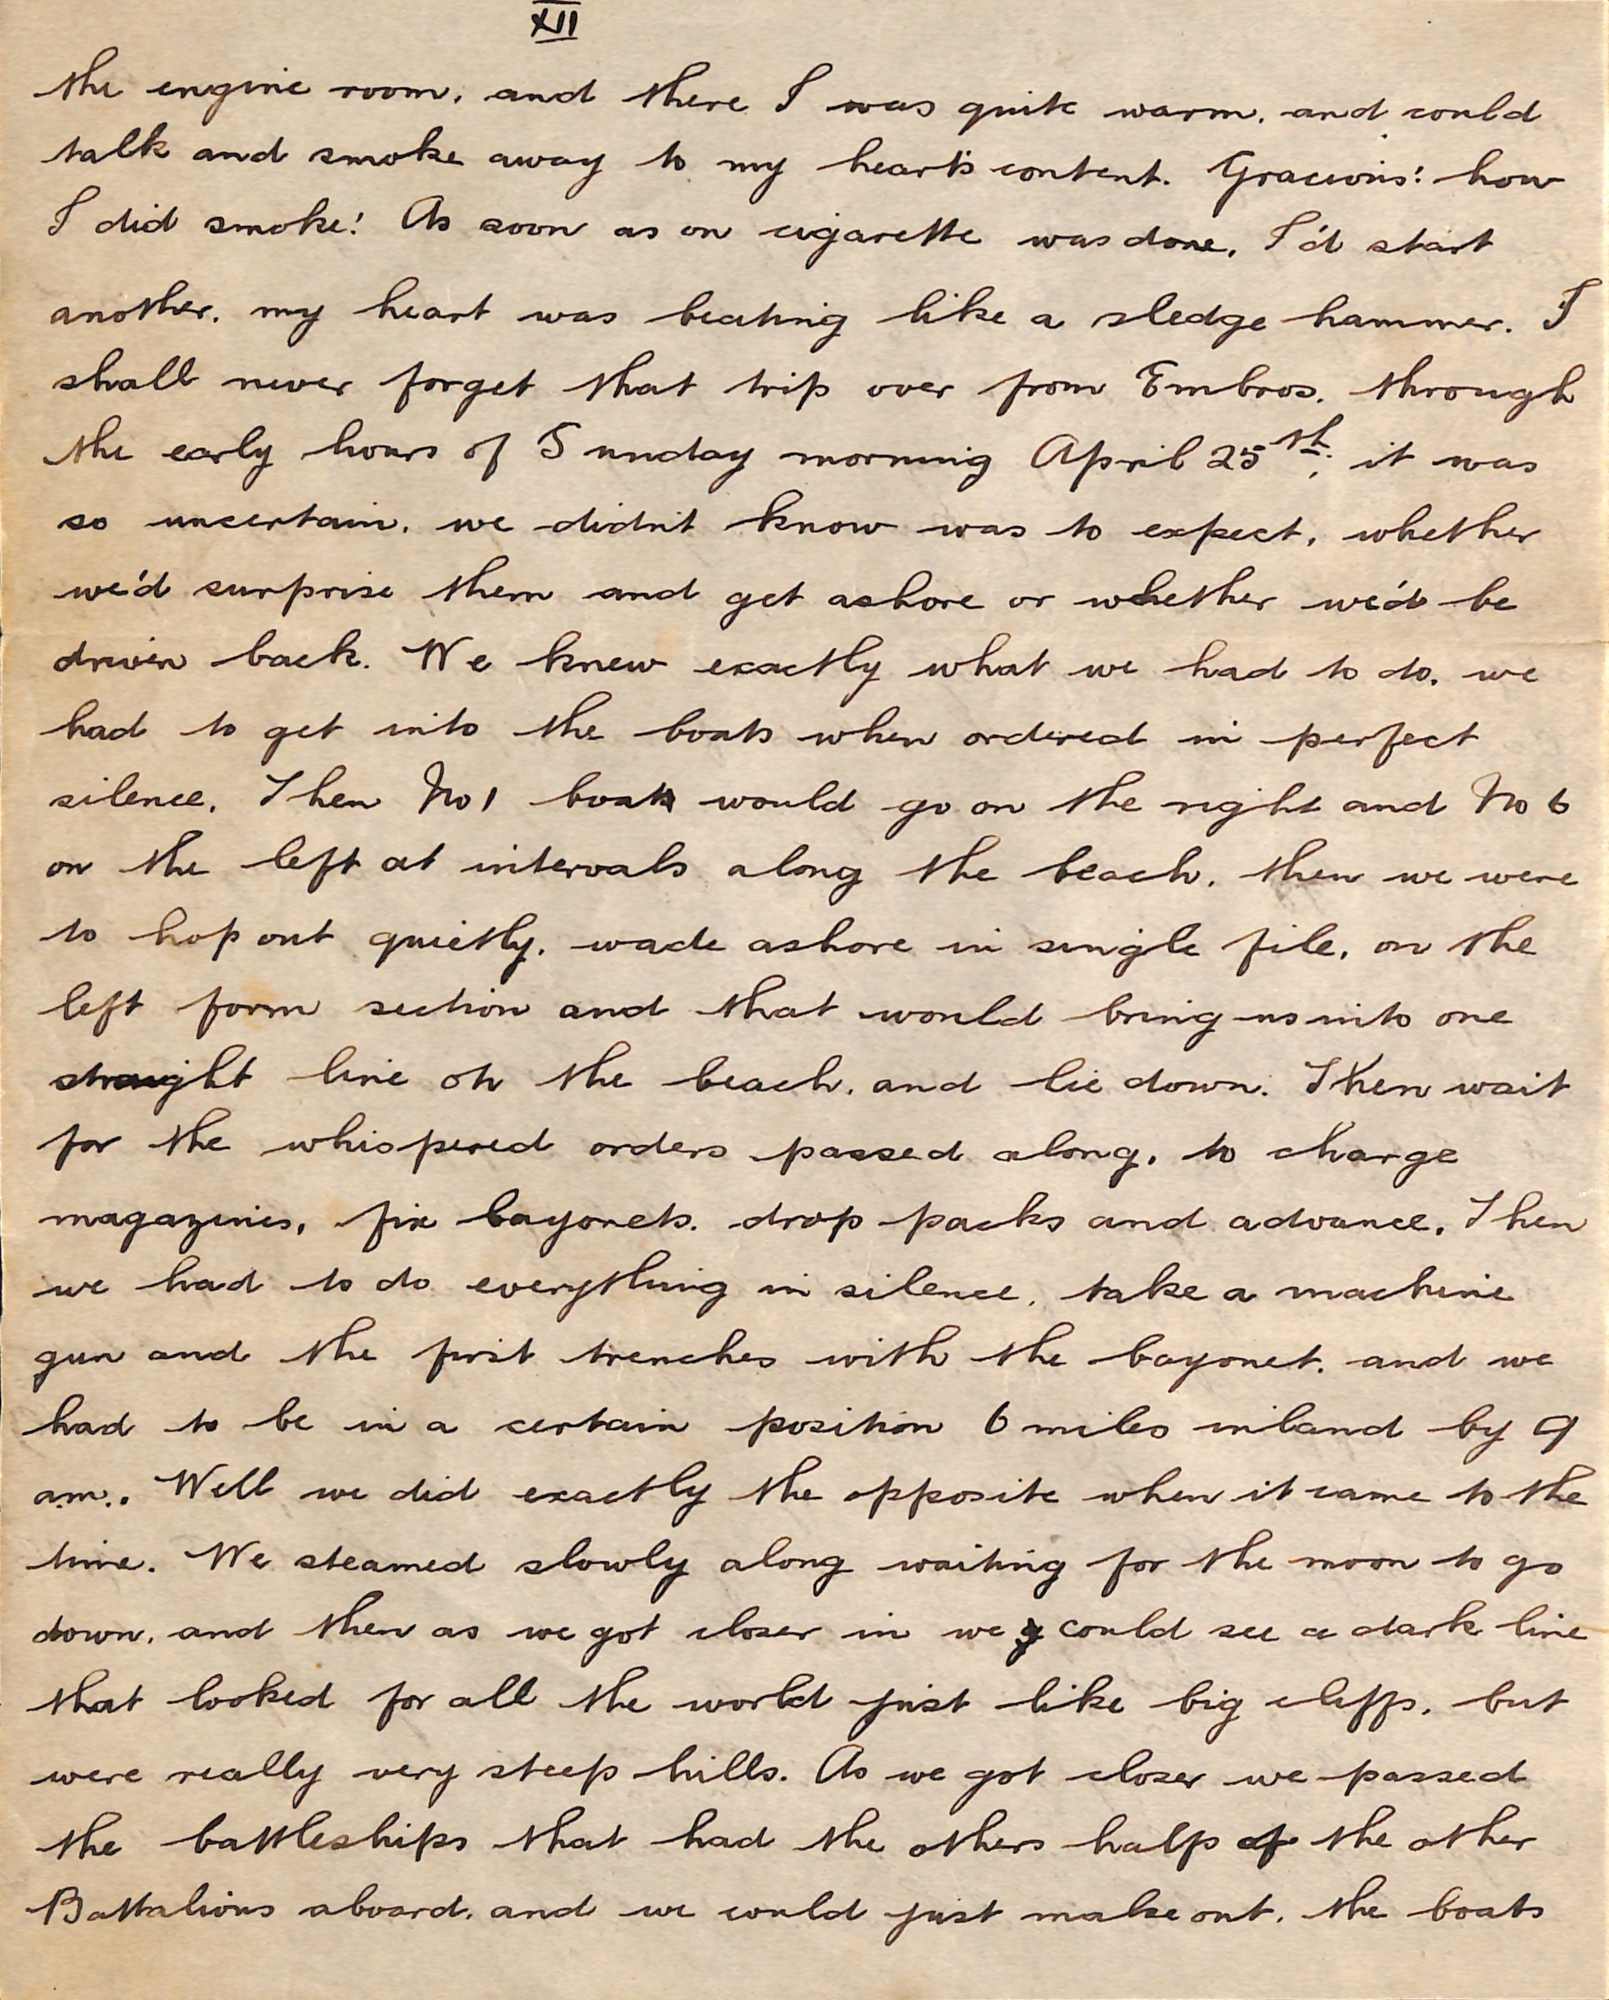 XII
the engine room, and there I was quite warm, and could
talk and smoke away to my heart's content. Gracious! how
I did smoke! As soon as on cigarette was done, I'd start
another, my heart was beating like a sledge hammer. I
shall never forget that trip over from Embros, through
the early hours of Sunday morning April 25th; it was
so uncertain, we didn't know was to expect, whether
we'd surprise them and get ashore or whether we'd be
driven back. We knew exactly what we had to do, we
had to get into the boats when ordered in perfect
silence. Then No 1 boat would go on the right and No 6
on the left at intervals along the beach, then we were
to hop out quietly, wade ashore in single file, on the
left form section and that would bring us into one
straight line on the beach, and lie down. Then wait
for the whispered orders passed along, to charge
magazines, fix bayonets, drop packs and advance. Then
we had to do everything in silence, take a machine
gun and the first trenches with the bayonet, and we
had to be in a certain position 6 miles inland by 9
a.m.. Well we did exactly the opposite when it came to the
time. We steamed slowly along waiting for the moon to go
down, and then as we got closer in we could see a dark line
that looked for all the world just like big cliffs, but
were really very steep hills. As we got closer we passed
the battleships that had the others halfs of the other
Battalions aboard, and we could just make out, the boats